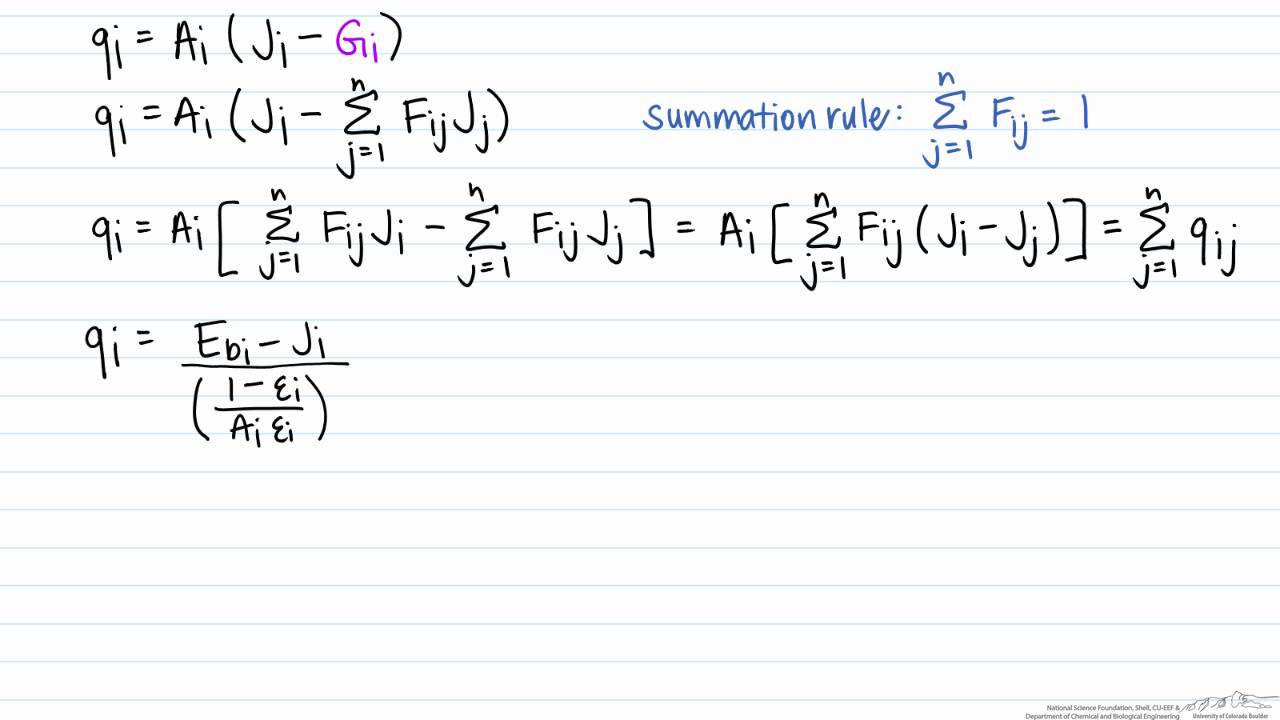 qi = Ai (Ji − Gi)
qi = Ai (Ji − Σ_{j=1}^{n} Fij Jj)
summation rule: Σ_{j=1}^{n} Fij = 1
qi = Ai [ Σ_{j=1}^{n} Fij Ji − Σ_{j=1}^{n} Fij Jj ] = Ai [ Σ_{j=1}^{n} Fij (Ji − Jj) ] = Σ_{j=1}^{n} qij
qi = (Ebi − Ji) / ((1 − εi) / (Ai εi))
National Science Foundation, Shell, CU-EEF &
Department of Chemical and Biological Engineering
University of Colorado Boulder